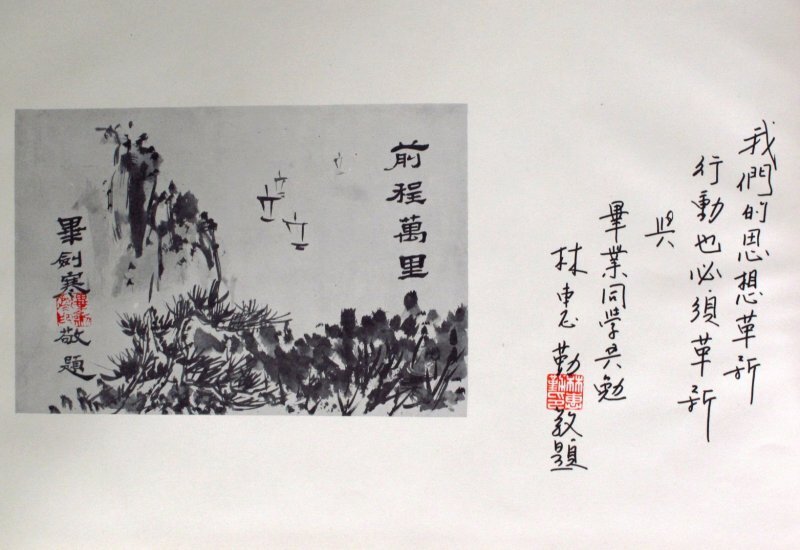 我們的思想革新
行動也必須革新
與
畢業同學共勉
林惠勤敬題
林惠勤印
前程萬里
畢劍寒敬題